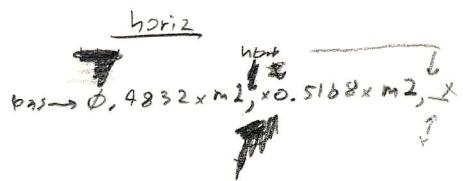 horiz
pas→ 0, 4832 x m2, x0.5168 x m2, x